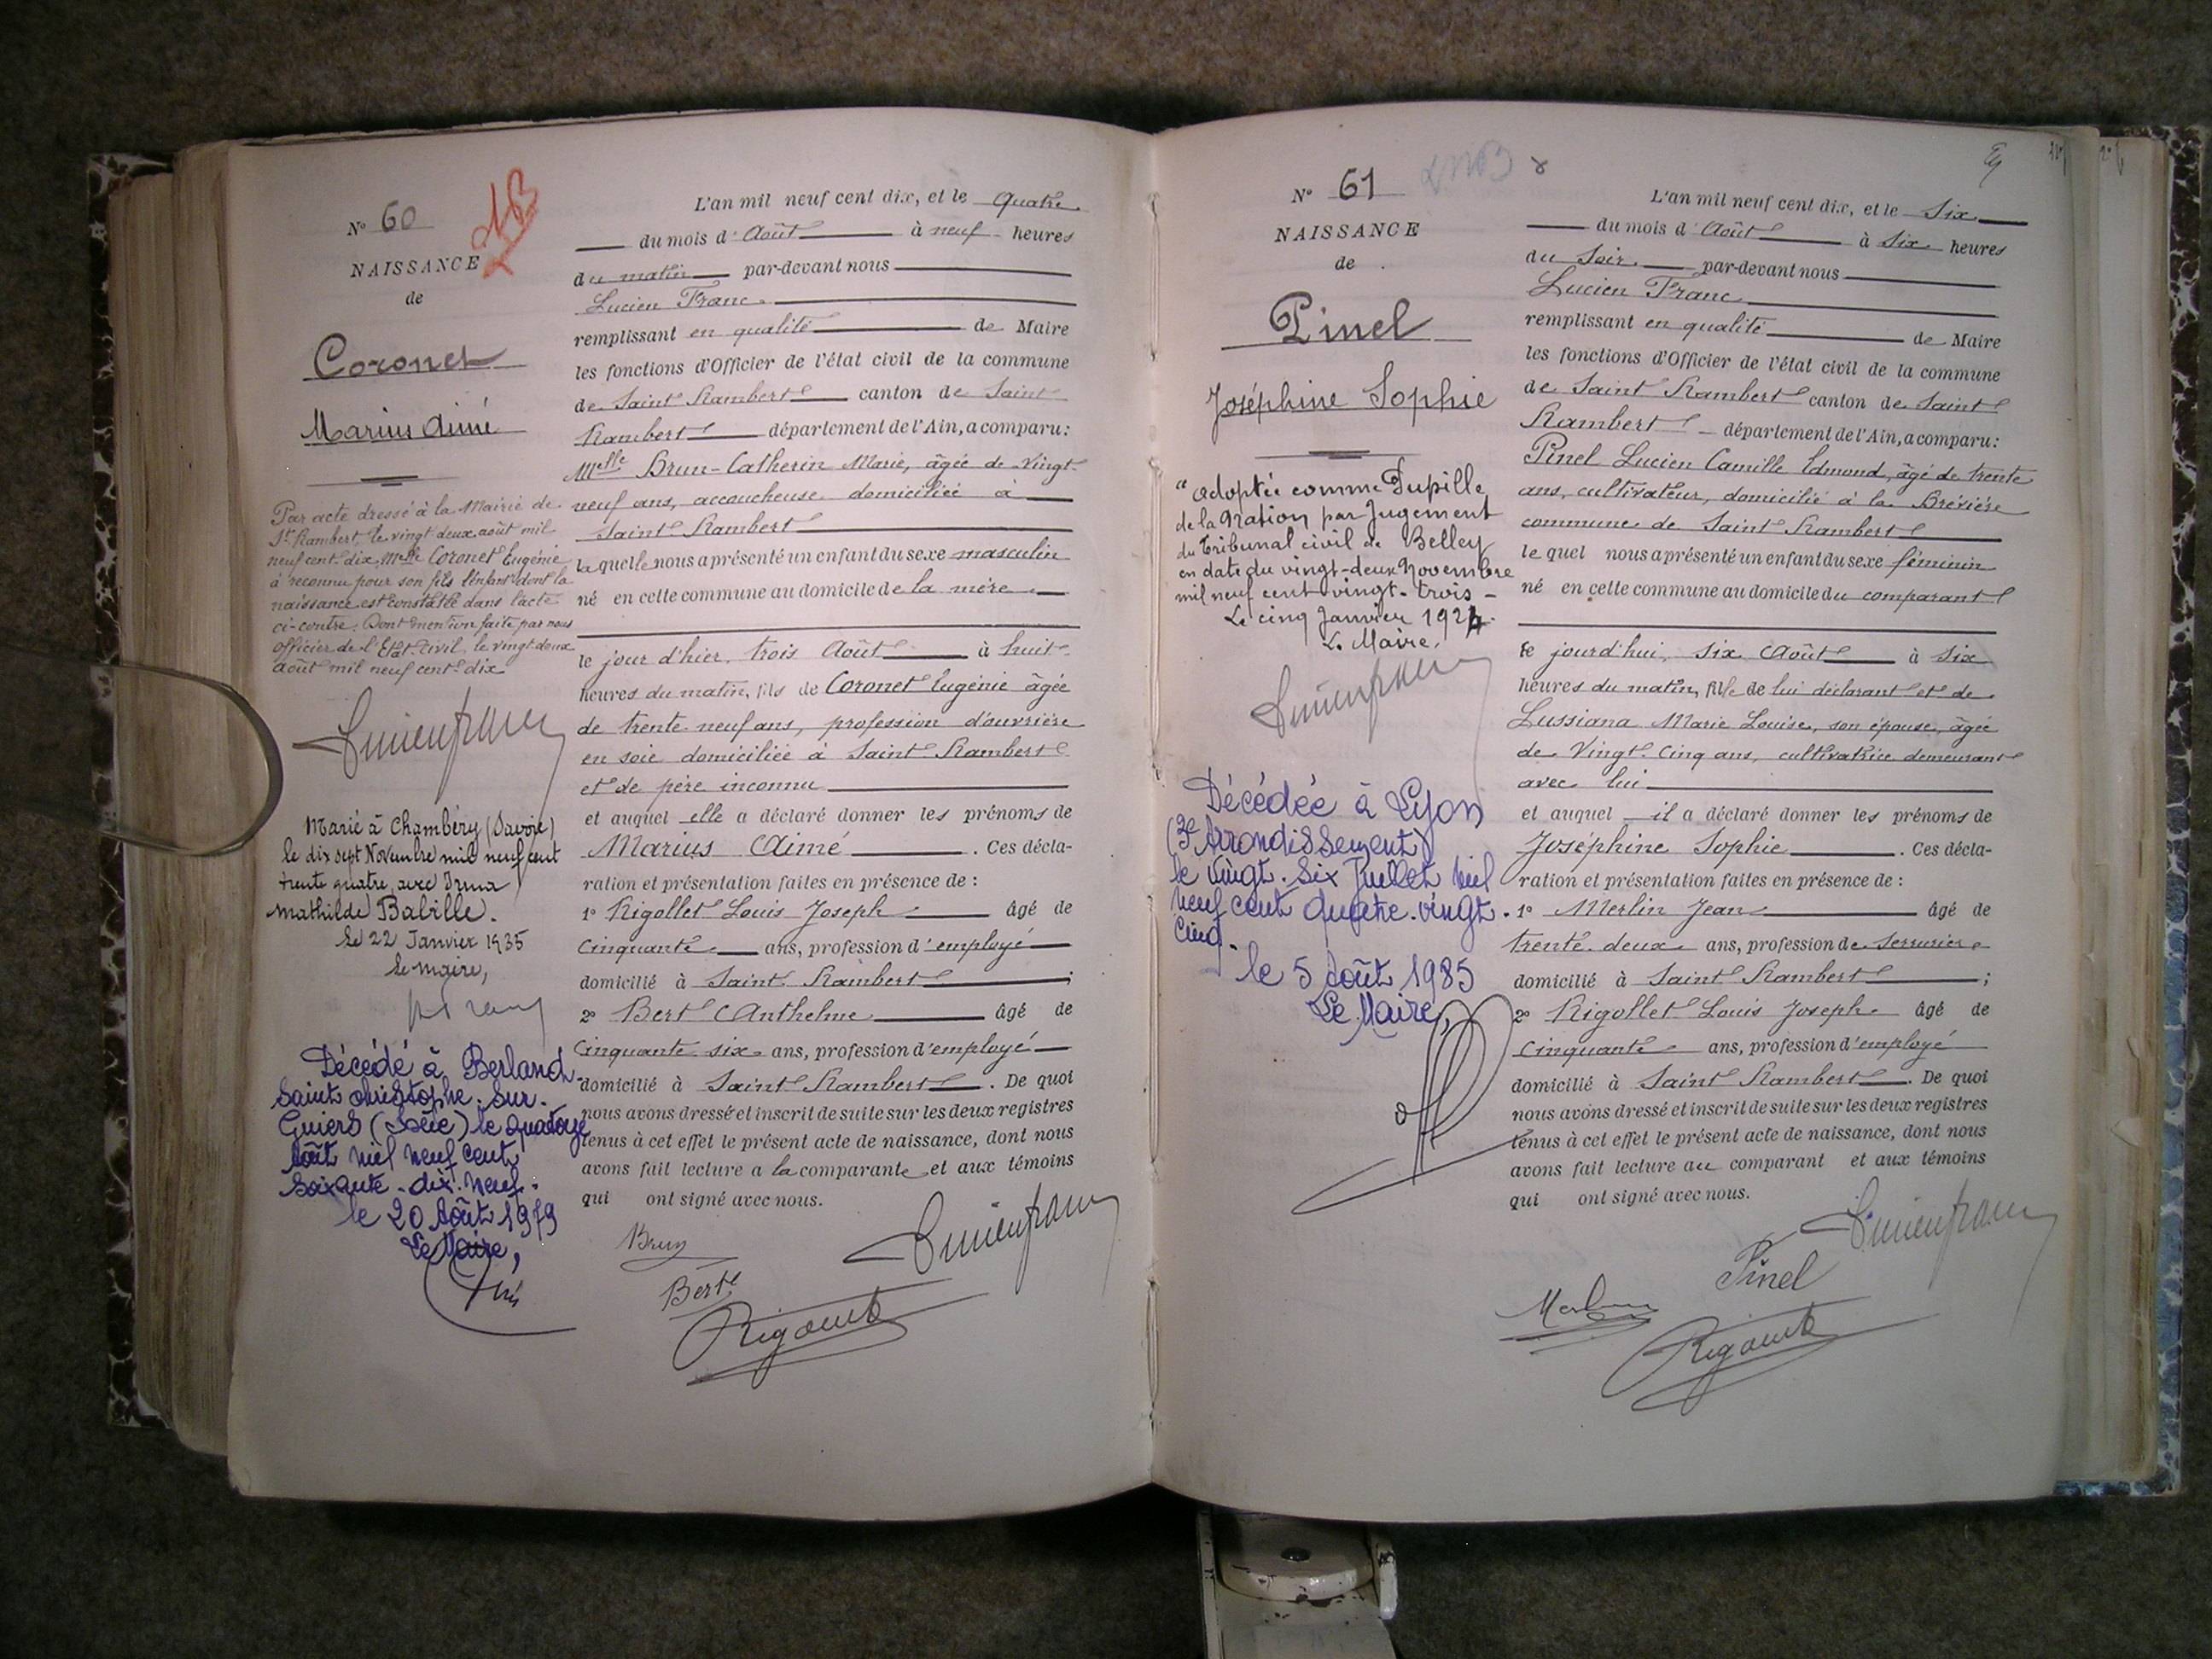 N° 60
NAISSANCE
de
Coronet
Marius Aimé
Par acte dressé à la Mairie de
St Rambert, le vingt deux août mil
neuf cent dix, Melle Coronet Eugénie
à reconnu pour son fils l'enfant dont la
naissance est constatée dans l'acte
ci-contre. Dont mention faite par nous
Officier de l'Etat Civil, le vingt deux
août mil neuf cent dix
Lucien franc
Marié à Chambéry (Savoie)
le dix sept Novembre mil neuf cent
trente quatre avec Irma
Mathilde Babille.
Le 22 Janvier 1935
Le maire,
Décédé à Berland
Saint Christophe-sur-
Guiers (Isère) le quatorze
Août mil neuf cent
soixante-dix-neuf.
le 20 Août 1979
Le Maire,
L'an mil neuf cent dix, et le Quatre
du mois d'Août à neuf heures
du matin par-devant nous
Lucien Franc
remplissant en qualité de Maire
les fonctions d'Officier de l'état civil de la commune
de Saint Rambert canton de Saint
Rambert département de l'Ain, a comparu:
Melle Brun-Catherin Marie, âgée de vingt
neuf ans, accoucheuse domiciliée à
Saint Rambert
laquelle nous a présenté un enfant du sexe masculin
né en cette commune au domicile de la mère
le jour d'hier, trois Août à huit
heures du matin, fils de Coronet Eugénie âgée
de trente neuf ans, profession d'ouvrière
en soie domiciliée à Saint Rambert
et de père inconnu
et auquel elle a déclaré donner les prénoms de
Marius Aimé . Ces décla-
ration et présentation faites en présence de :
1° Rigollet Louis Joseph âgé de
cinquante ans, profession d'employé
domicilié à Saint Rambert ;
2° Bert Anthelme âgé de
cinquante six ans, profession d'employé
domicilié à Saint Rambert . De quoi
nous avons dressé et inscrit de suite sur les deux registres
tenus à cet effet le présent acte de naissance, dont nous
avons fait lecture a la comparante et aux témoins
qui ont signé avec nous.
Brun
Lucien franc
Bert
N° 61
NAISSANCE
de
Pinel
Joséphine Sophie
"adoptée comme Pupille
de la Nation par Jugement
du Tribunal civil de Belley
en date du vingt-deux Novembre
mil neuf cent vingt-trois -
Le cinq Janvier 1924.
Le Maire,
Lucien franc
Décédée à Lyon
(3e Arrondissement)
le vingt-six Juillet mil
neuf cent quatre-vingt-
cinq.
le 5 août 1985
Le Maire,
L'an mil neuf cent dix, et le Six
du mois d'Août à six heures
du Soir par-devant nous
Lucien Franc
remplissant en qualité de Maire
les fonctions d'Officier de l'état civil de la commune
de Saint Rambert canton de Saint
Rambert département de l'Ain, a comparu:
Pinel Lucien Camille Edmond, âgé de trente
ans, cultivateur, domicilié à la Brévière
commune de Saint Rambert
lequel nous a présenté un enfant du sexe féminin
né en cette commune au domicile du comparant
le jourd'hui, six Août à six
heures du matin, fille de lui déclarant et de
Lussiana Marie Louise, son épouse, âgée
de Vingt-Cinq ans, cultivatrice demeurant
avec lui
et auquel il a déclaré donner les prénoms de
Joséphine Sophie . Ces décla-
ration et présentation faites en présence de :
1° Merlin Jean âgé de
trente-deux ans, profession de serrurier
domicilié à Saint Rambert ;
2° Rigollet Louis Joseph âgé de
cinquante ans, profession d'employé
domicilié à Saint Rambert . De quoi
nous avons dressé et inscrit de suite sur les deux registres
tenus à cet effet le présent acte de naissance, dont nous
avons fait lecture au comparant et aux témoins
qui ont signé avec nous.
Lucien franc
Pinel
Merlin